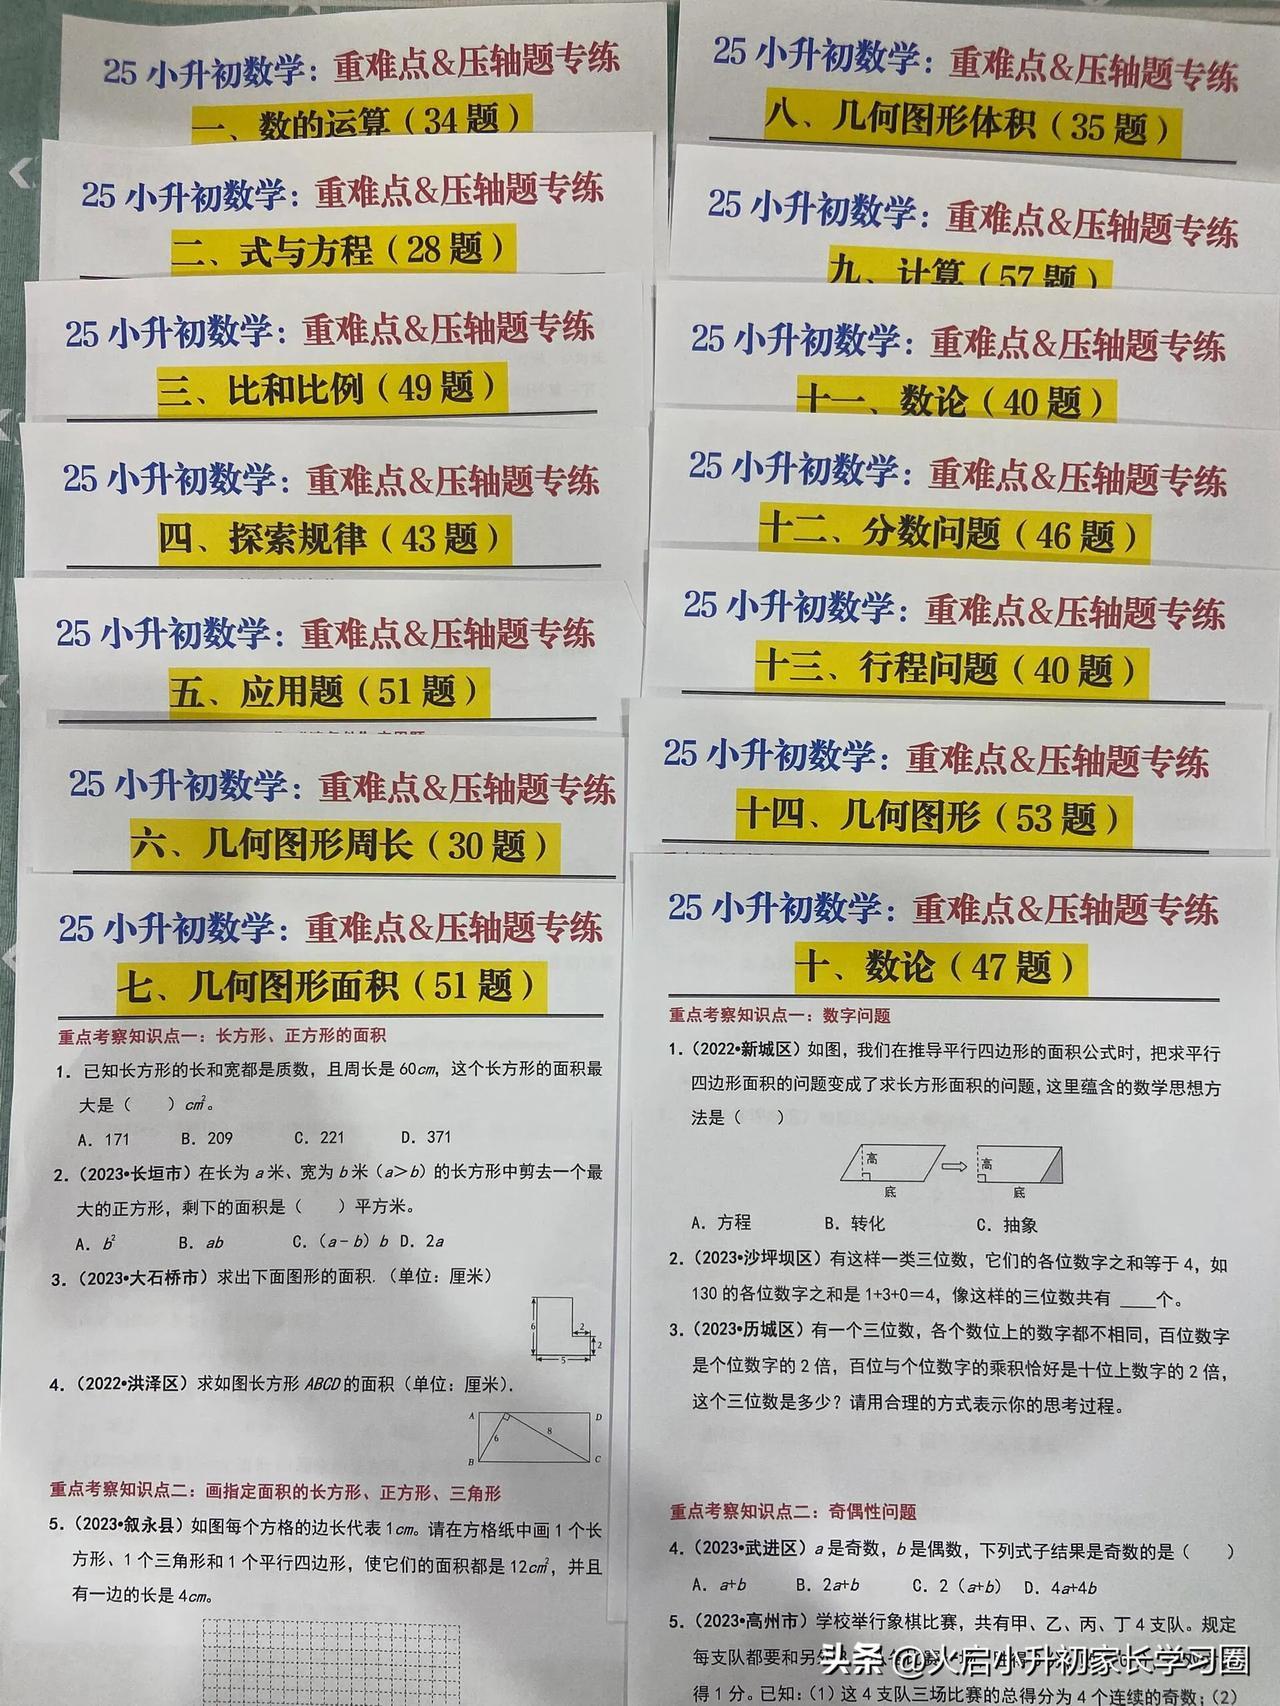 25 小升初数学：重难点&压轴题专练
一、数的运算（34 题）
25 小升初数学：重难点&压轴题专练
二、式与方程（28 题）
25 小升初数学：重难点&压轴题专练
三、比和比例（49 题）
25 小升初数学：重难点&压轴题专练
四、探索规律（43 题）
25 小升初数学：重难点&压轴题专练
五、应用题（51 题）
25 小升初数学：重难点&压轴题专练
六、几何图形周长（30 题）
25 小升初数学：重难点&压轴题专练
七、几何图形面积（51 题）
重点考察知识点一：长方形、正方形的面积
1．已知长方形的长和宽都是质数，且周长是 60cm，这个长方形的面积最
大是（　　）cm²。
A．171　B．209　C．221　D．371
2．（2023•长垣市）在长为 a 米、宽为 b 米（a＞b）的长方形中剪去一个最
大的正方形，剩下的面积是（　　）平方米。
A．b²　B．ab　C．（a－b）b　D．2a
3．（2023•大石桥市）求出下面图形的面积．（单位：厘米）
6
2
2
5
4．（2022•洪泽区）求如图长方形 ABCD 的面积（单位：厘米）．
A
D
6
8
B
C
重点考察知识点二：画指定面积的长方形、正方形、三角形
5．（2023•叙永县）如图每个方格的边长代表 1cm。请在方格纸中画 1 个长
方形、1 个三角形和 1 个平行四边形，使它们的面积都是 12cm²，并且
有一边的长是 4cm。
25 小升初数学：重难点&压轴题专练
八、几何图形体积（35 题）
25 小升初数学：重难点&压轴题专练
九、计算（57 题）
25 小升初数学：重难点&压轴题专练
十一、数论（40 题）
25 小升初数学：重难点&压轴题专练
十二、分数问题（46 题）
25 小升初数学：重难点&压轴题专练
十三、行程问题（40 题）
25 小升初数学：重难点&压轴题专练
十四、几何图形（53 题）
25 小升初数学：重难点&压轴题专练
十、数论（47 题）
重点考察知识点一：数字问题
1．（2022•新城区）如图，我们在推导平行四边形的面积公式时，把求平行
四边形面积的问题变成了求长方形面积的问题，这里蕴含的数学思想方
法是（　　）
高
底
高
底
A．方程　B．转化　C．抽象
2．（2023•沙坪坝区）有这样一类三位数，它们的各位数字之和等于 4，如
130 的各位数字之和是 1+3+0＝4，像这样的三位数共有 ____个。
3．（2023•历城区）有一个三位数，各个数位上的数字都不相同，百位数字
是个位数字的 2 倍，百位与个位数字的乘积恰好是十位上数字的 2 倍，
这个三位数是多少？请用合理的方式表示你的思考过程。
重点考察知识点二：奇偶性问题
4．（2023•武进区）a 是奇数，b 是偶数，下列式子结果是奇数的是（　　）
A．a+b　B．2a+b　C．2（a+b）　D．4a+4b
5．（2023•高州市）学校举行象棋比赛，共有甲、乙、丙、丁 4 支队。规定
每支队都要和另外
得 1 分。已知：（1）这 4 支队三场比赛的总得分为 4 个连续的奇数；（2）
头条 @火启小升初家长学习圈